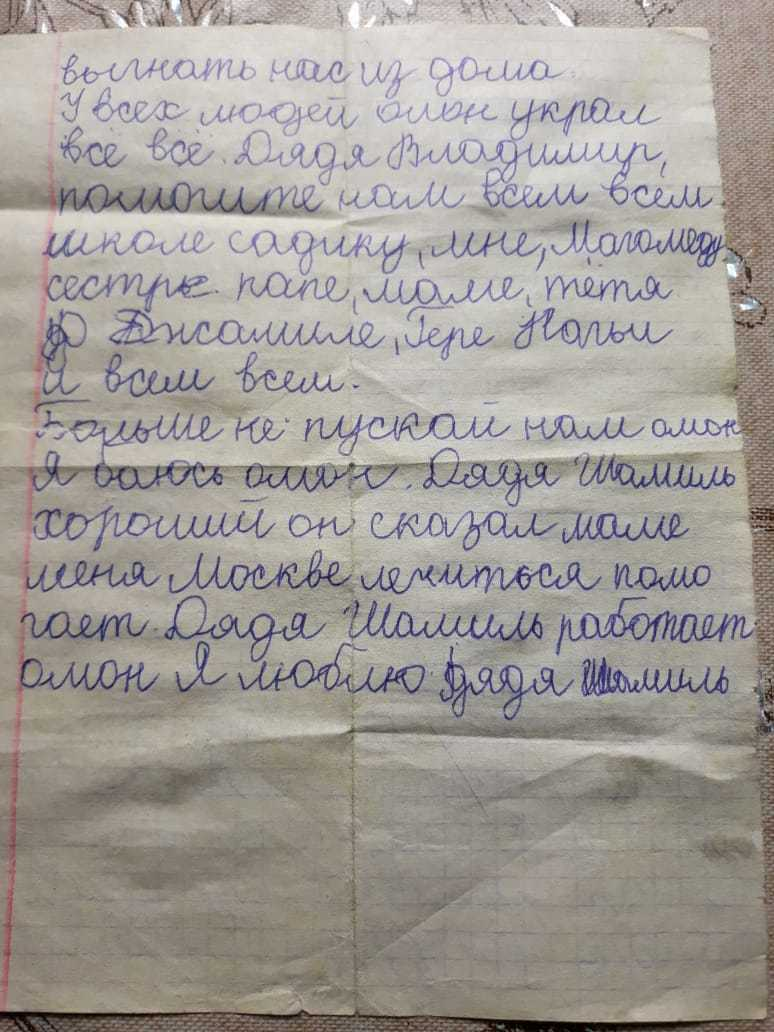 выгнать нас из дома.
У всех людей омон украл
всё всё. Дядя Владимир,
помогите нам всем всем
школе садику, мне, Магомеду
сестре папе, маме, тётя
Джамиле, Гере
И всем всем.
Больше не пускай нам омон
Я баюсь омон. Дядя Шамиль
хороший он сказал маме
меня Москве лечиться помо
гает. Дядя Шамиль работает
омон Я люблю дядя Шамиль